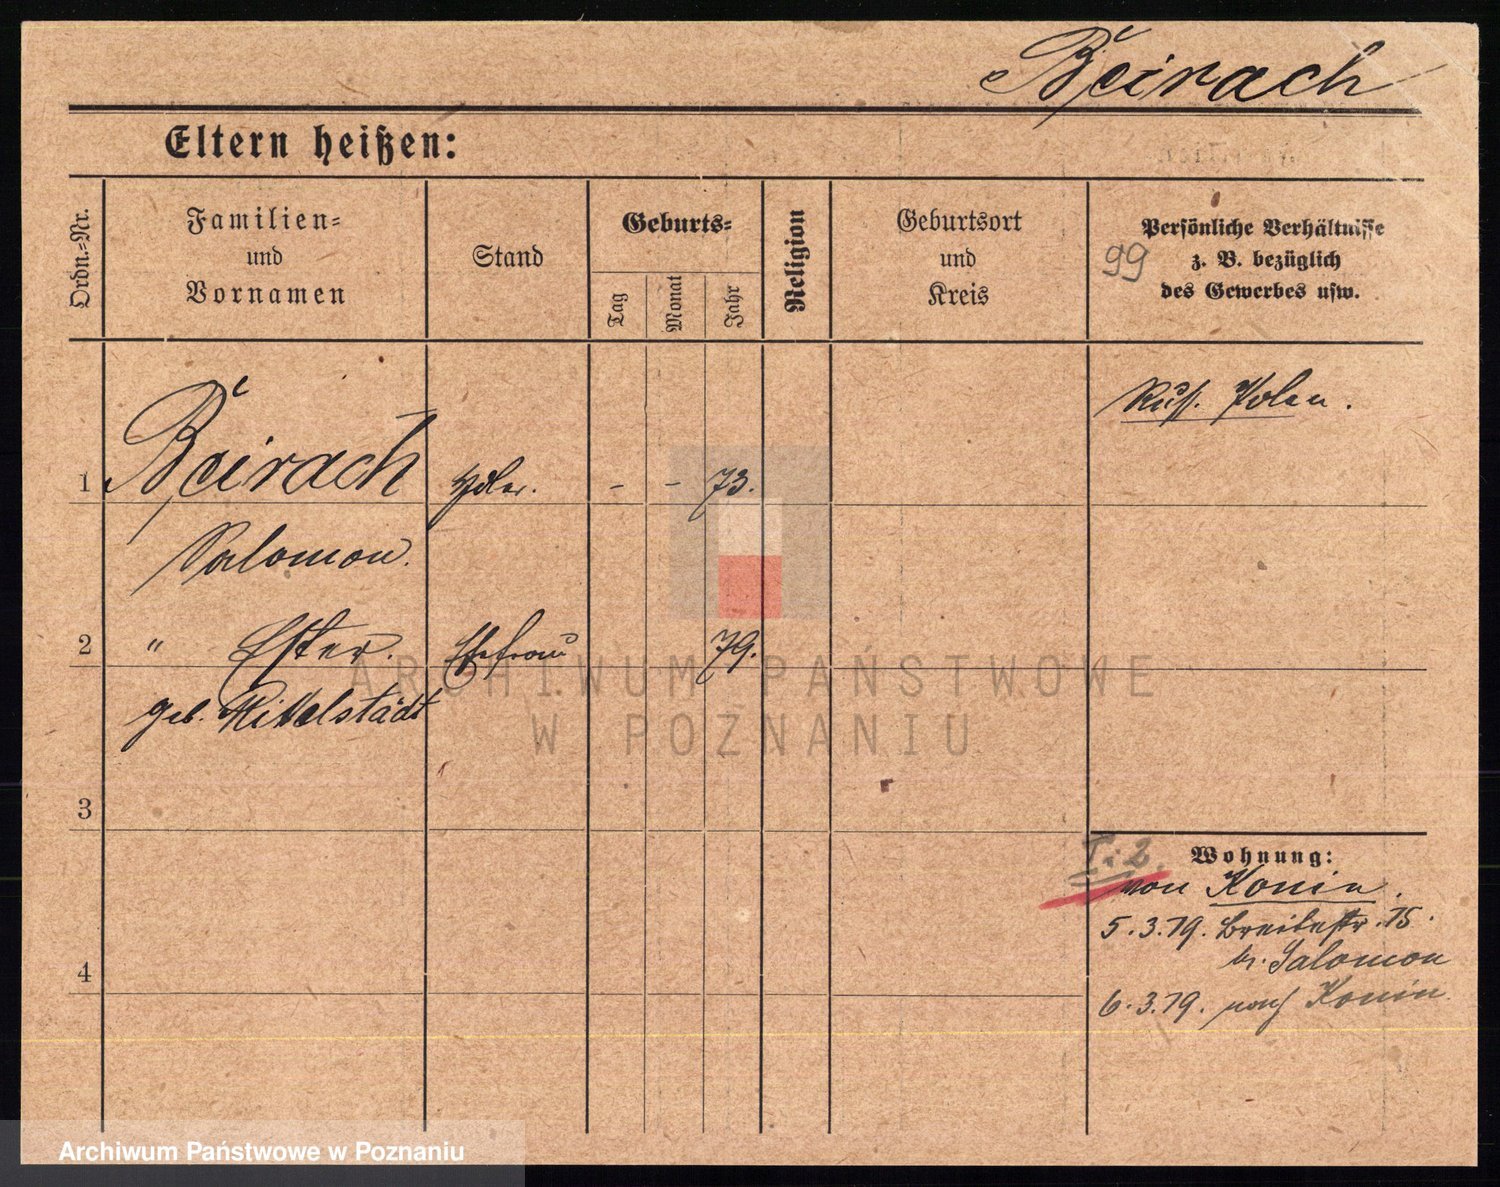 Beirach
Eltern heißen:
Ordn.=Nr.
Familien=
und
Vornamen
Stand
Geburts=
Tag
Monat
Jahr
Religion
Geburtsort
und
Kreis
Persönliche Verhältnisse
z. B. bezüglich
des Gewerbes usw.
99
Russ. Polen.
1 Beirach Hdlr. - - 73.
Salomon.
2 " Ester. Ehefrau 79.
geb. Mittelstädt
3
Wohnung:
von Konin.
5.3.19. Breitestr. 15.
4
b. Salomon
6.3.19. nach Konin.
ARCHIWUM PAŃSTWOWE
W POZNANIU
Archiwum Państwowe w Poznaniu